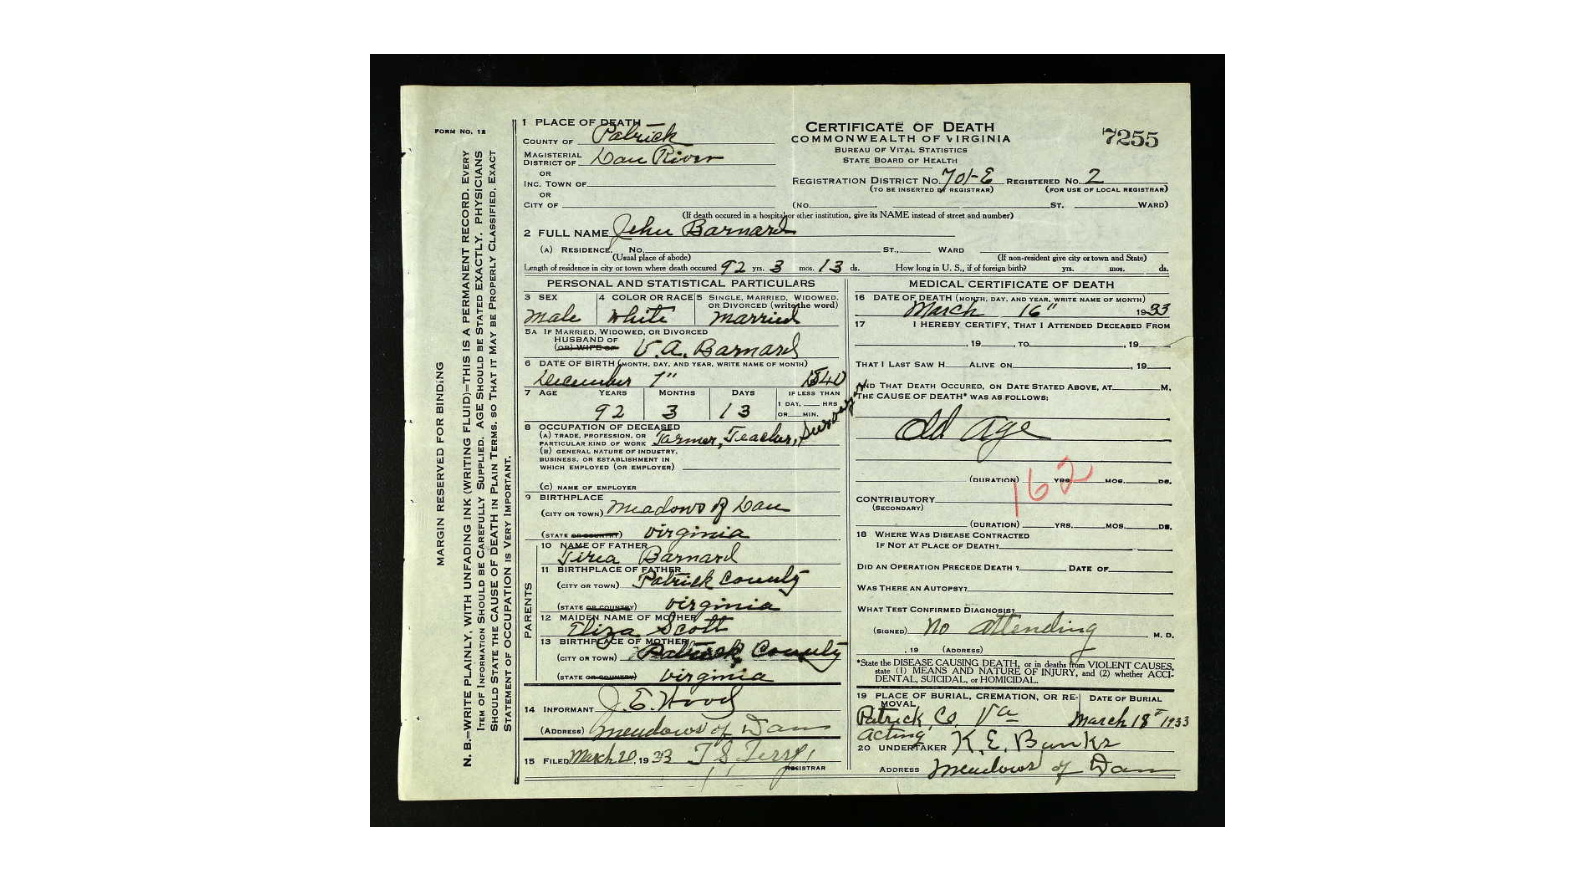 FORM NO. 12
MARGIN RESERVED FOR BINDING
N. B.—WRITE PLAINLY, WITH UNFADING INK (WRITING FLUID)—THIS IS A PERMANENT RECORD. EVERY
ITEM OF INFORMATION SHOULD BE CAREFULLY SUPPLIED. AGE SHOULD BE STATED EXACTLY. PHYSICIANS
SHOULD STATE THE CAUSE OF DEATH IN PLAIN TERMS, SO THAT IT MAY BE PROPERLY CLASSIFIED. EXACT
STATEMENT OF OCCUPATION IS VERY IMPORTANT.
1 PLACE OF DEATH
COUNTY OF Patrick
MAGISTERIAL
DISTRICT OF Dan River
OR
INC. TOWN OF
OR
CITY OF
CERTIFICATE OF DEATH
COMMONWEALTH OF VIRGINIA
BUREAU OF VITAL STATISTICS
STATE BOARD OF HEALTH
7255
REGISTRATION DISTRICT NO. 701-E REGISTERED NO. 2
(TO BE INSERTED BY REGISTRAR) (FOR USE OF LOCAL REGISTRAR)
(NO. ST. WARD)
(If death occured in a hospital or other institution, give its NAME instead of street and number)
2 FULL NAME Jehu Barnard
(A) RESIDENCE. NO. ST., WARD
(Usual place of abode) (If non-resident give city or town and State)
Length of residence in city or town where death occured 92 yrs. 3 mos. 13 ds. How long in U. S., if of foreign birth? yrs. mos. ds.
PERSONAL AND STATISTICAL PARTICULARS
3 SEX 4 COLOR OR RACE 5 SINGLE, MARRIED, WIDOWED,
OR DIVORCED (write the word)
male white married
5A IF MARRIED, WIDOWED, OR DIVORCED
HUSBAND OF
(OR) WIFE OF V.A. Barnard
6 DATE OF BIRTH (MONTH, DAY, AND YEAR, WRITE NAME OF MONTH)
December 1" 1840
7 AGE YEARS MONTHS DAYS IF LESS THAN
1 DAY, HRS
OR MIN.
92 3 13
8 OCCUPATION OF DECEASED
(A) TRADE, PROFESSION, OR
PARTICULAR KIND OF WORK Farmer, Teacher, Surveyor
(B) GENERAL NATURE OF INDUSTRY,
BUSINESS, OR ESTABLISHMENT IN
WHICH EMPLOYED (OR EMPLOYER)
(C) NAME OF EMPLOYER
9 BIRTHPLACE
(CITY OR TOWN) Meadows of Dan
(STATE OR COUNTRY) Virginia
PARENTS
10 NAME OF FATHER
Tirea Barnard
11 BIRTHPLACE OF FATHER
(CITY OR TOWN) Patrick County
(STATE OR COUNTRY) Virginia
12 MAIDEN NAME OF MOTHER
Eliza Scott
13 BIRTHPLACE OF MOTHER
(CITY OR TOWN) Patrick County
(STATE OR COUNTRY) Virginia
14 INFORMANT J.E. Wood
(ADDRESS) Meadows of Dan
15 FILED March 20, 1933 T S Terry,
REGISTRAR
MEDICAL CERTIFICATE OF DEATH
16 DATE OF DEATH (MONTH, DAY, AND YEAR, WRITE NAME OF MONTH)
March 16" 1933
17 I HEREBY CERTIFY, THAT I ATTENDED DECEASED FROM
, 19 , TO , 19
THAT I LAST SAW H ALIVE ON , 19
AND THAT DEATH OCCURED, ON DATE STATED ABOVE, AT M.
THE CAUSE OF DEATH* WAS AS FOLLOWS:
Old Age
162
(DURATION) YRS. MOS. DS.
CONTRIBUTORY
(SECONDARY)
(DURATION) YRS. MOS. DS.
18 WHERE WAS DISEASE CONTRACTED
IF NOT AT PLACE OF DEATH?
DID AN OPERATION PRECEDE DEATH? DATE OF
WAS THERE AN AUTOPSY?
WHAT TEST CONFIRMED DIAGNOSIS?
(SIGNED) No attending M. D.
, 19 (ADDRESS)
*State the DISEASE CAUSING DEATH, or in deaths from VIOLENT CAUSES,
state (1) MEANS AND NATURE OF INJURY, and (2) whether ACCI-
DENTAL, SUICIDAL, or HOMICIDAL.
19 PLACE OF BURIAL, CREMATION, OR RE-
MOVAL DATE OF BURIAL
Patrick Co. Va March 18" 1933
acting
20 UNDERTAKER K.E. Banks
ADDRESS Meadows of Dan